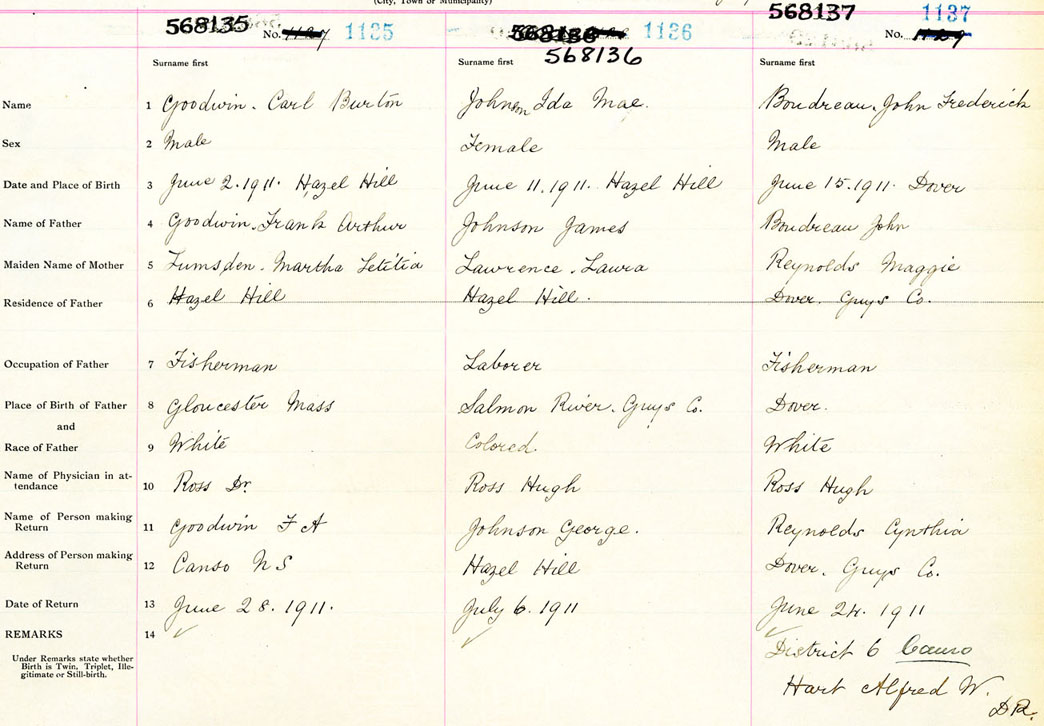 (City, Town or Municipality)
568135 No. 1135
568136 1136
568137 No. 1137
Surname first Surname first Surname first
Name 1 Goodwin. Carl Burton Johnson Ida Mae. Boudreau, John Frederick
Sex 2 Male Female Male
Date and Place of Birth 3 June 2. 1911. Hazel Hill June 11. 1911. Hazel Hill June 15. 1911. Dover
Name of Father 4 Goodwin. Frank Arthur Johnson James Boudreau John
Maiden Name of Mother 5 Lumsden. Martha Letitia Lawrence. Laura Reynolds Maggie
Residence of Father 6 Hazel Hill Hazel Hill. Dover. Guys Co.
Occupation of Father 7 Fisherman Laborer Fisherman
Place of Birth of Father 8 Gloucester Mass Salmon River. Guys Co. Dover.
and
Race of Father 9 White Colored White
Name of Physician in at-
tendance 10 Ross Dr. Ross Hugh Ross Hugh
Name of Person making
Return 11 Goodwin F A Johnson George. Reynolds Cynthia
Address of Person making
Return 12 Canso N S Hazel Hill Dover. Guys Co.
Date of Return 13 June 28. 1911. July 6. 1911 June 24. 1911
REMARKS 14
Under Remarks state whether
Birth is Twin, Triplet, Ille-
gitimate or Still-birth.
District 6 Canso
Hart Alfred W.
D.R.